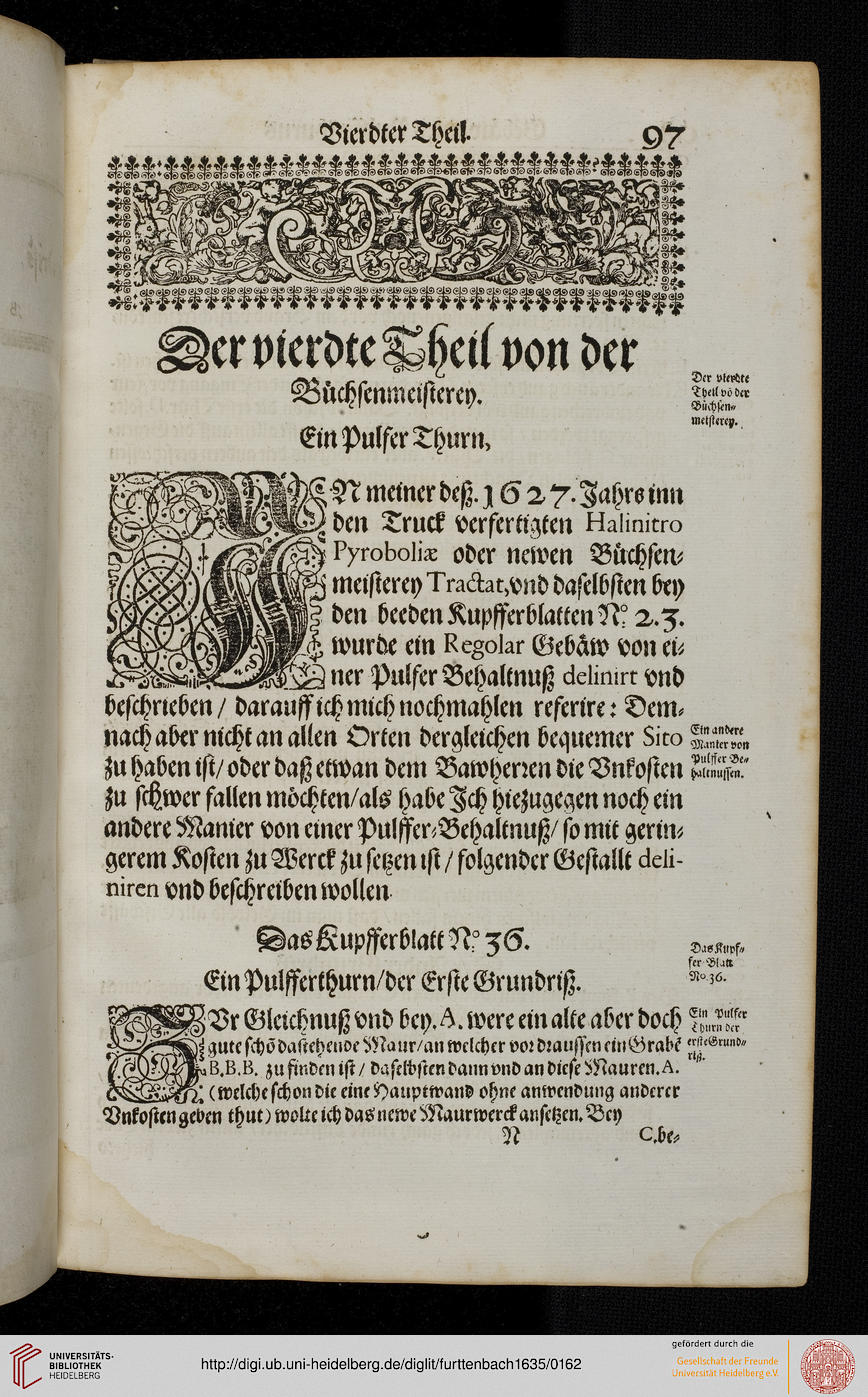 Vierdter Theil.
97
Der vierdte Theil von der
Büchsenmeisterey.
Ein Pulfer Thurn,
Der vierdte
Theil vō der
Büchsen-
meisterey.
IN meiner deß. 1627. Jahrs inn
den Truck verfertigten Halinitro
Pyroboliæ oder newen Büchsen-
meisterey Tractat, vnd daselbsten bey
den beeden Kupfferblatten No. 2.3.
wurde ein Regolar Gebäw von ei-
ner Pulfer Behaltnuß delinirt vnd
beschrieben / darauff ich mich nochmahlen referire: Dem-
nach aber nicht an allen Orten dergleichen bequemer Sito
zu haben ist/ oder daß etwan dem Bawherren die Vnkosten
zu schwer fallen möchten/als habe Ich hiezugegen noch ein
andere Manier von einer Pulffer-Behaltnuß/ so mit gerin-
gerem Kosten zu Werck zu setzen ist / folgender Gestallt deli-
niren vnd beschreiben wollen.
Ein andere
Manier von
Pulffer Be-
haltnussen.
Das Kupfferblatt No. 36.
Ein Pulfferthurn/der Erste Grundriß.
Das Kupf-
fer Blatt
No. 36.
ZVr Gleichnuß vnd bey. A. were ein alte aber doch
gute schō dastehende Maur/an welcher vor draussen ein Grabē
B.B.B. zu finden ist / daselbsten dann vnd an diese Mauren. A.
(welche schon die eine Hauptwand ohne anwendung anderer
Vnkosten geben thut) wolte ich das newe Maurwerck ansetzen. Bey
Ein Pulfer
Thurn der
erste Grund-
riß.
N
C. be-
UNIVERSITÄTS-
BIBLIOTHEK
HEIDELBERG
http://digi.ub.uni-heidelberg.de/diglit/furttenbach1635/0162
gefördert durch die
Gesellschaft der Freunde
Universität Heidelberg e.V.